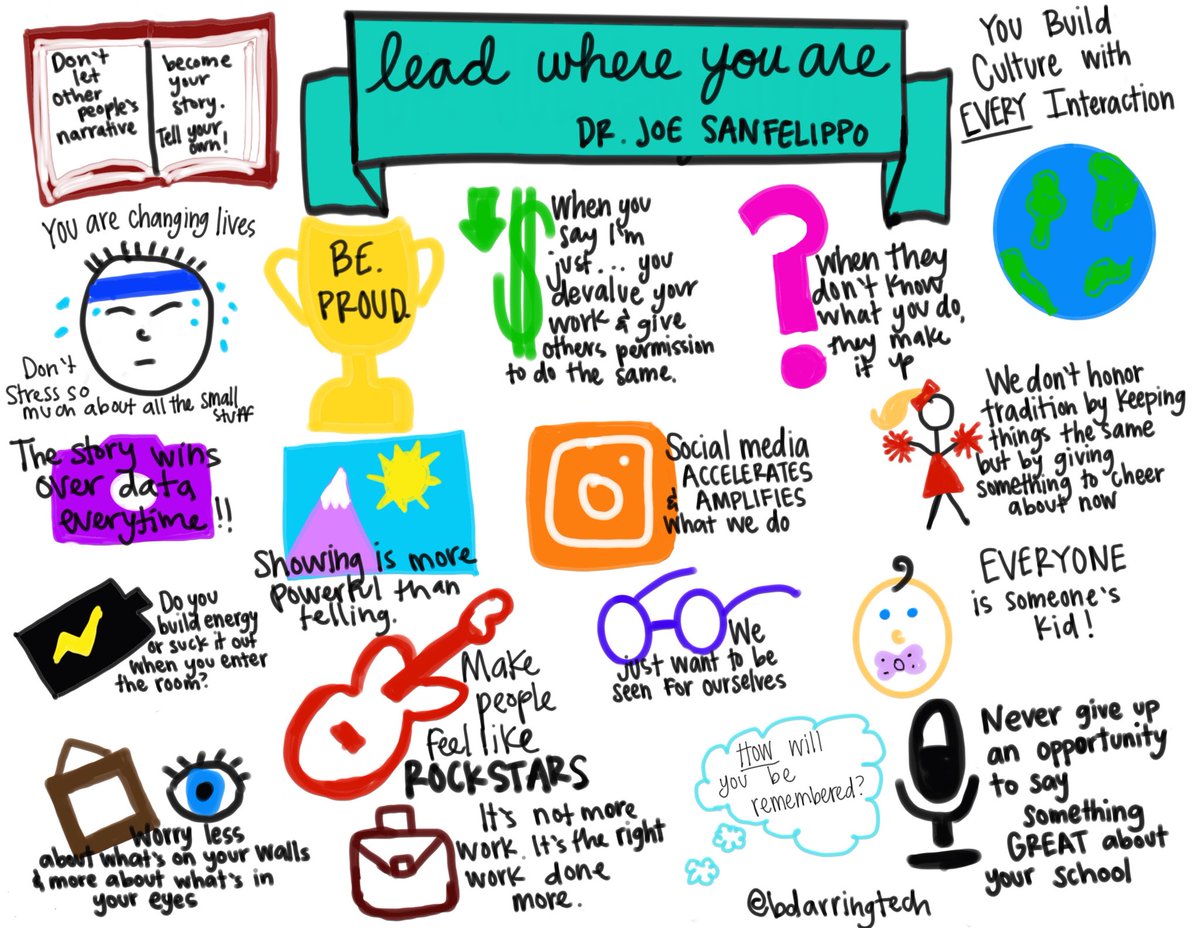 lead where you are
DR. JOE SANFELIPPO
Don't
let
other
people's
narrative
become
your
story.
Tell your
own!
You Build
Culture with
EVERY Interaction
You are changing lives
Don't
Stress so
much about all the small
stuff
BE.
PROUD.
When you
say I'm
just... you
devalve your
work & give
others permission
to do the same.
when they
don't know
what you do,
they make
it up
We don't honor
tradition by keeping
things the same
but by giving
something to cheer
about now
The story wins
over data
everytime!!
Showing is more
powerful than
telling.
Social media
ACCELERATES
& AMPLIFIES
what we do
EVERYONE
is someone's
kid!
Do you
build energy
or suck it out
when you enter
the room?
Make
people
feel like
ROCKSTARS
We
just want to be
seen for ourselves
HOW will
you be
remembered?
Never give up
an opportunity
to say
something
GREAT about
your school
Worry less
about what's on your walls
& more about what's in
your eyes
It's not more
work. It's the right
work done
more.
@bdarringtech